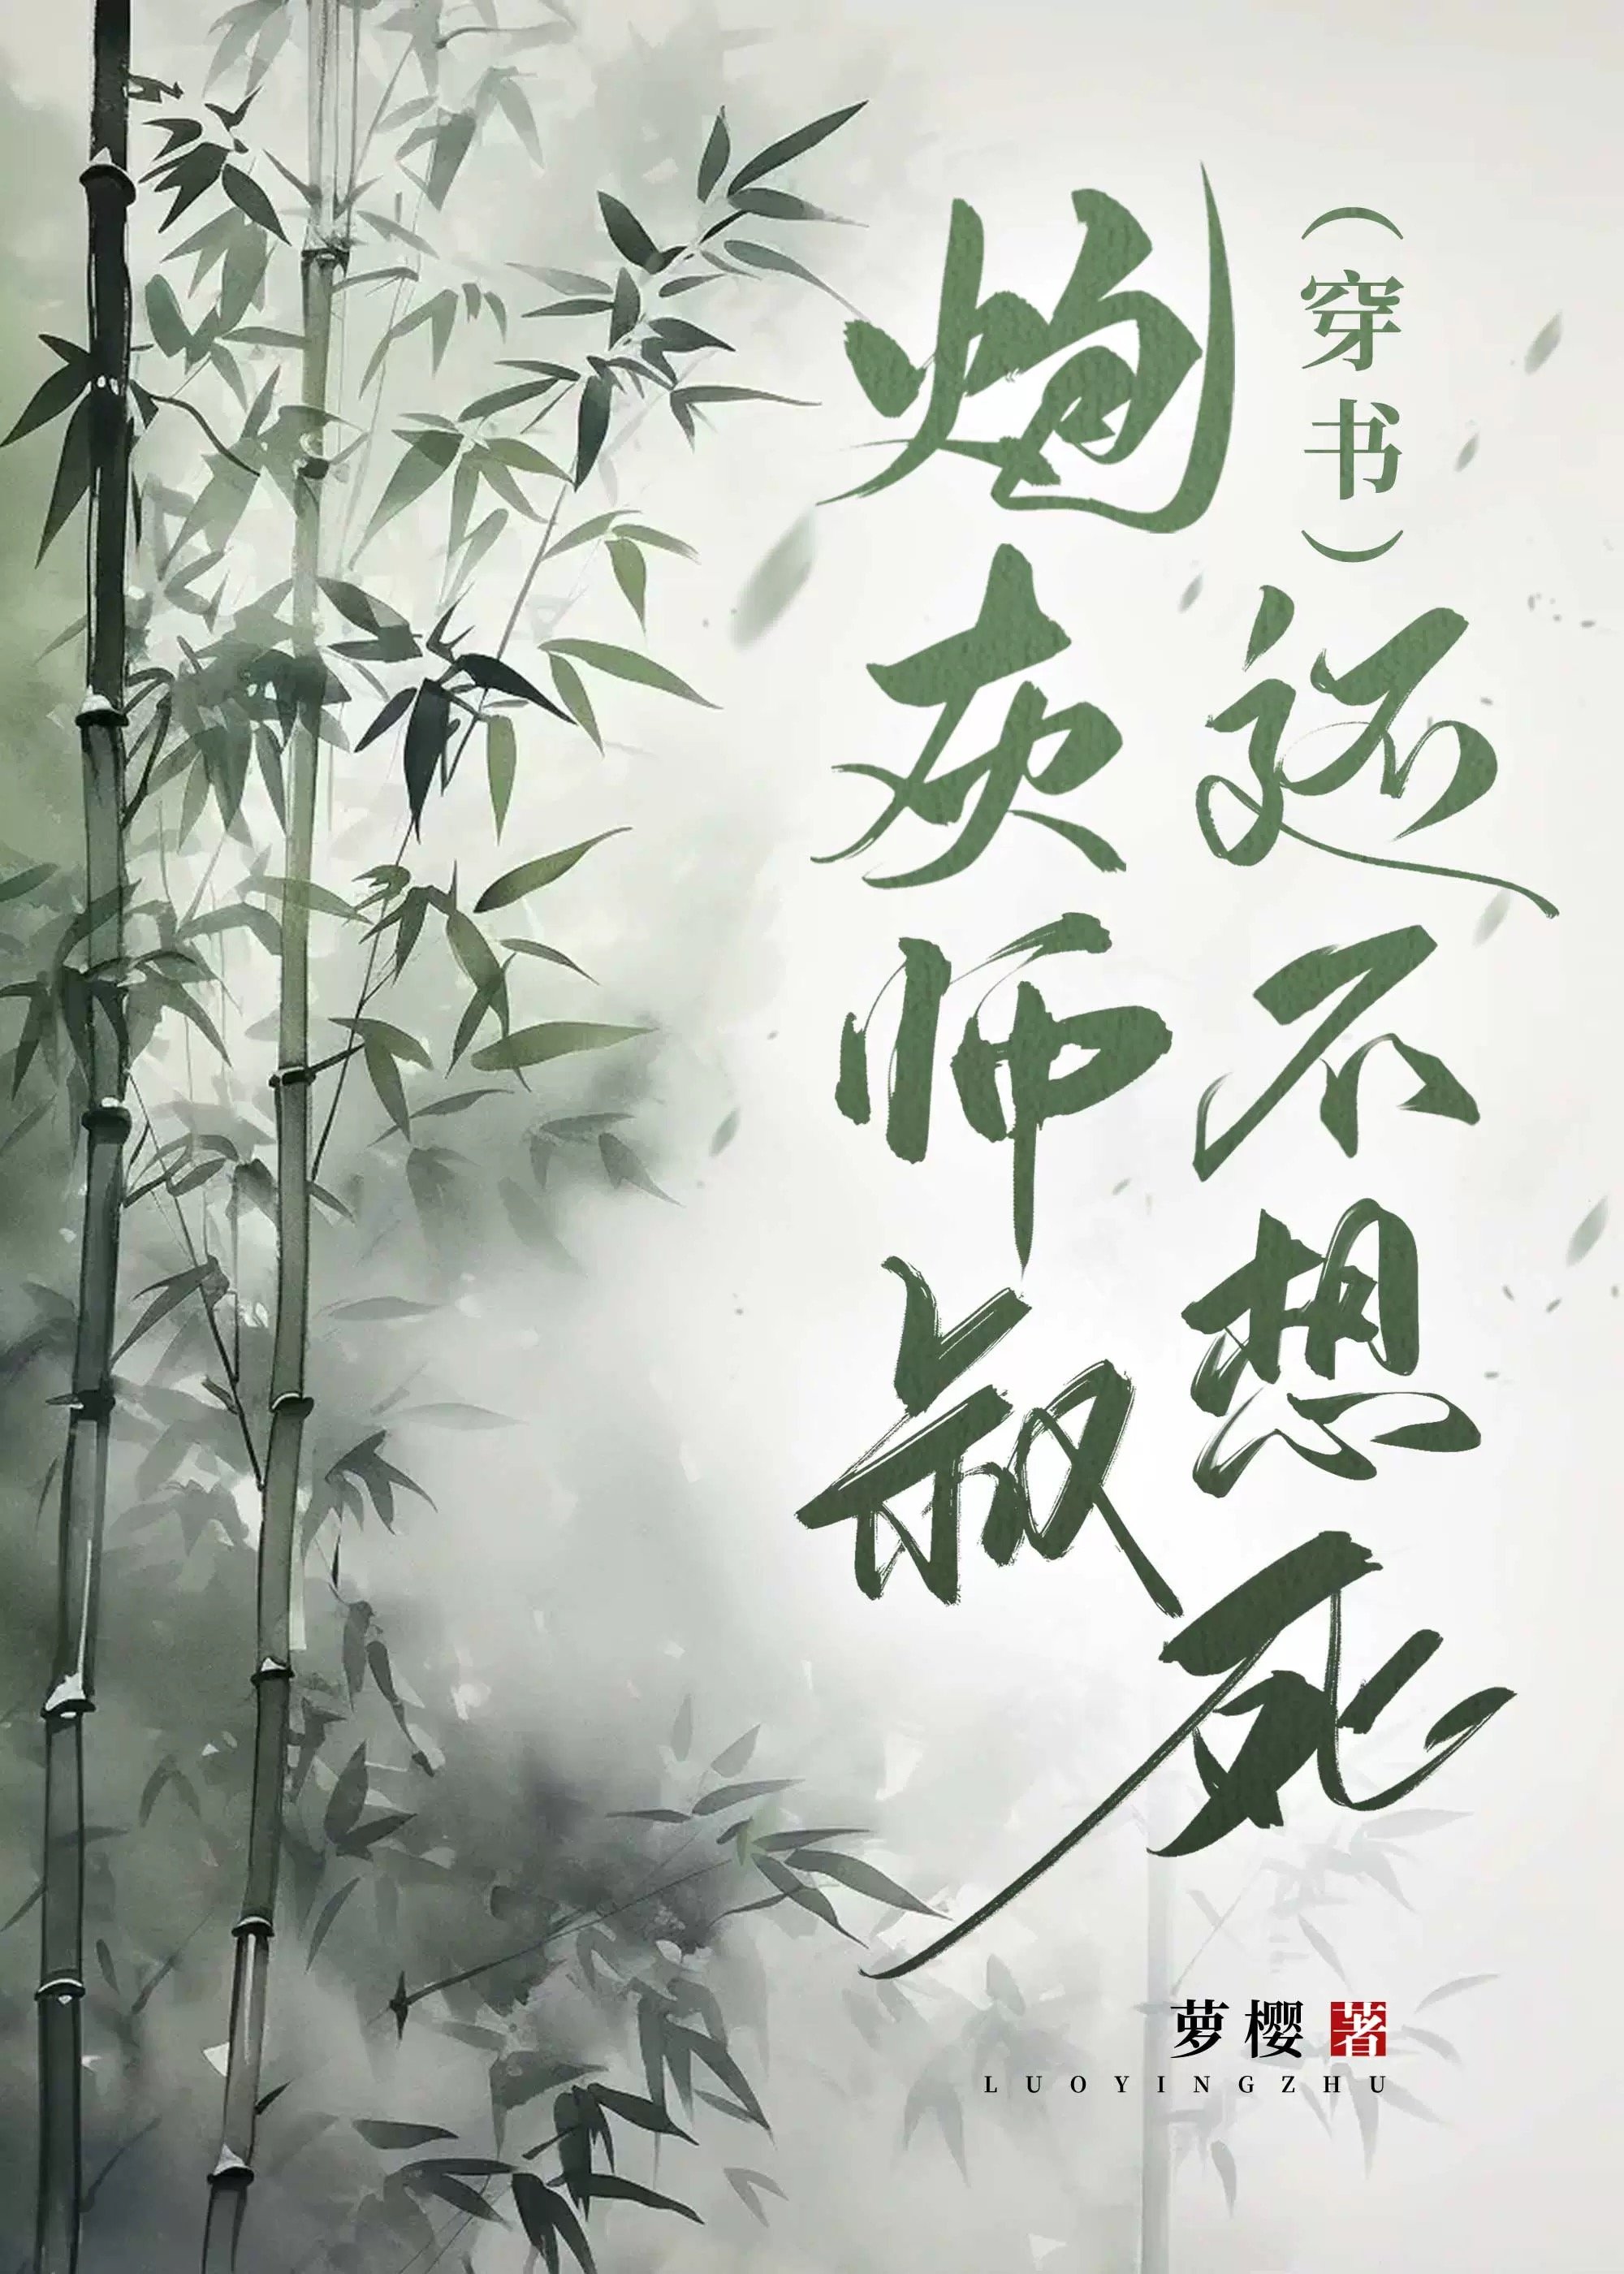 炮灰师叔
(穿书)
还不想死
萝樱 著
LUOYINGZHU